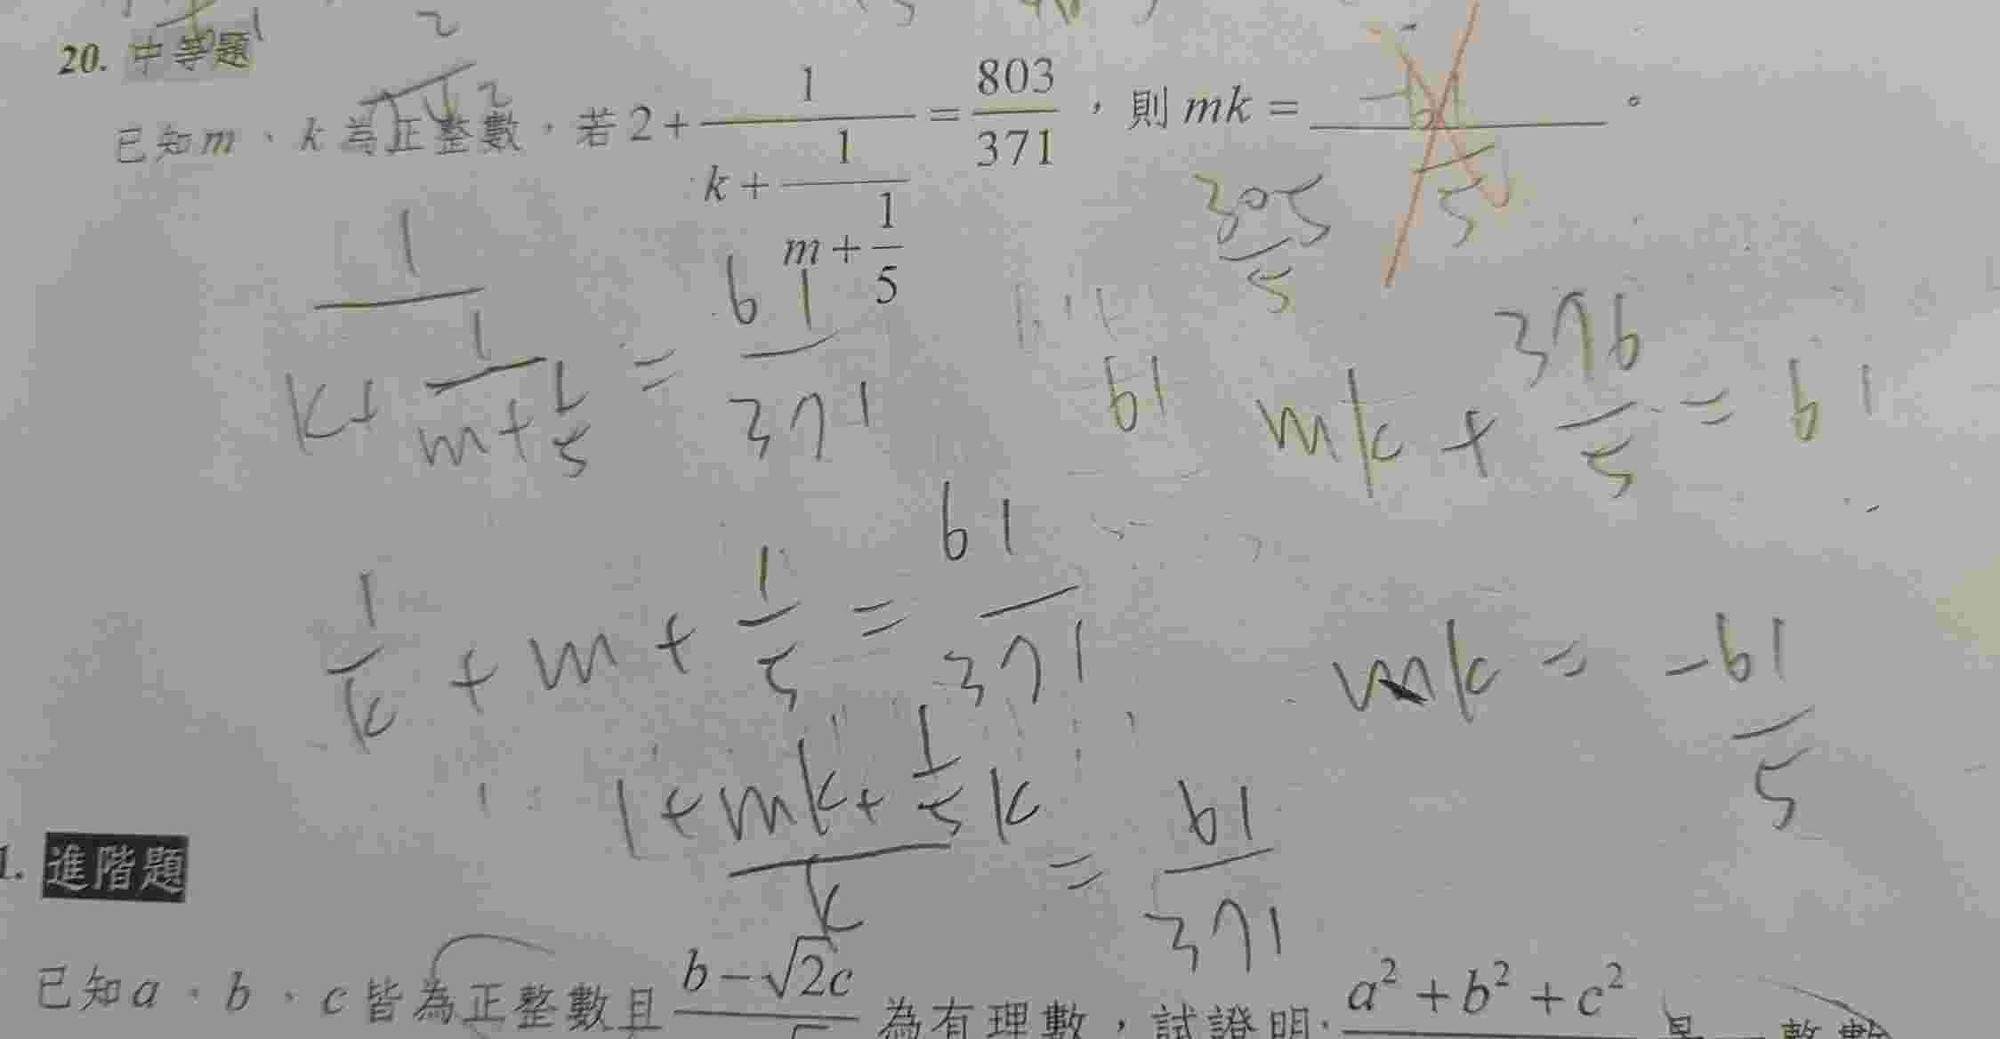 20. 中等題
已知m、k為正整數，若2+1/(k+1/(m+1/5))=803/371，則mk=-61/5。
305/5
1/(k+1/(m+1/5))=61/371
61
mk+376/5=61
1/k+m+1/5=61/371
mk=-61/5
(1+mk+1/5k)/k=61/371
1. 進階題
已知a、b、c皆為正整數且 b-√2c 為有理數，試證明： a²+b²+c² 是 整數